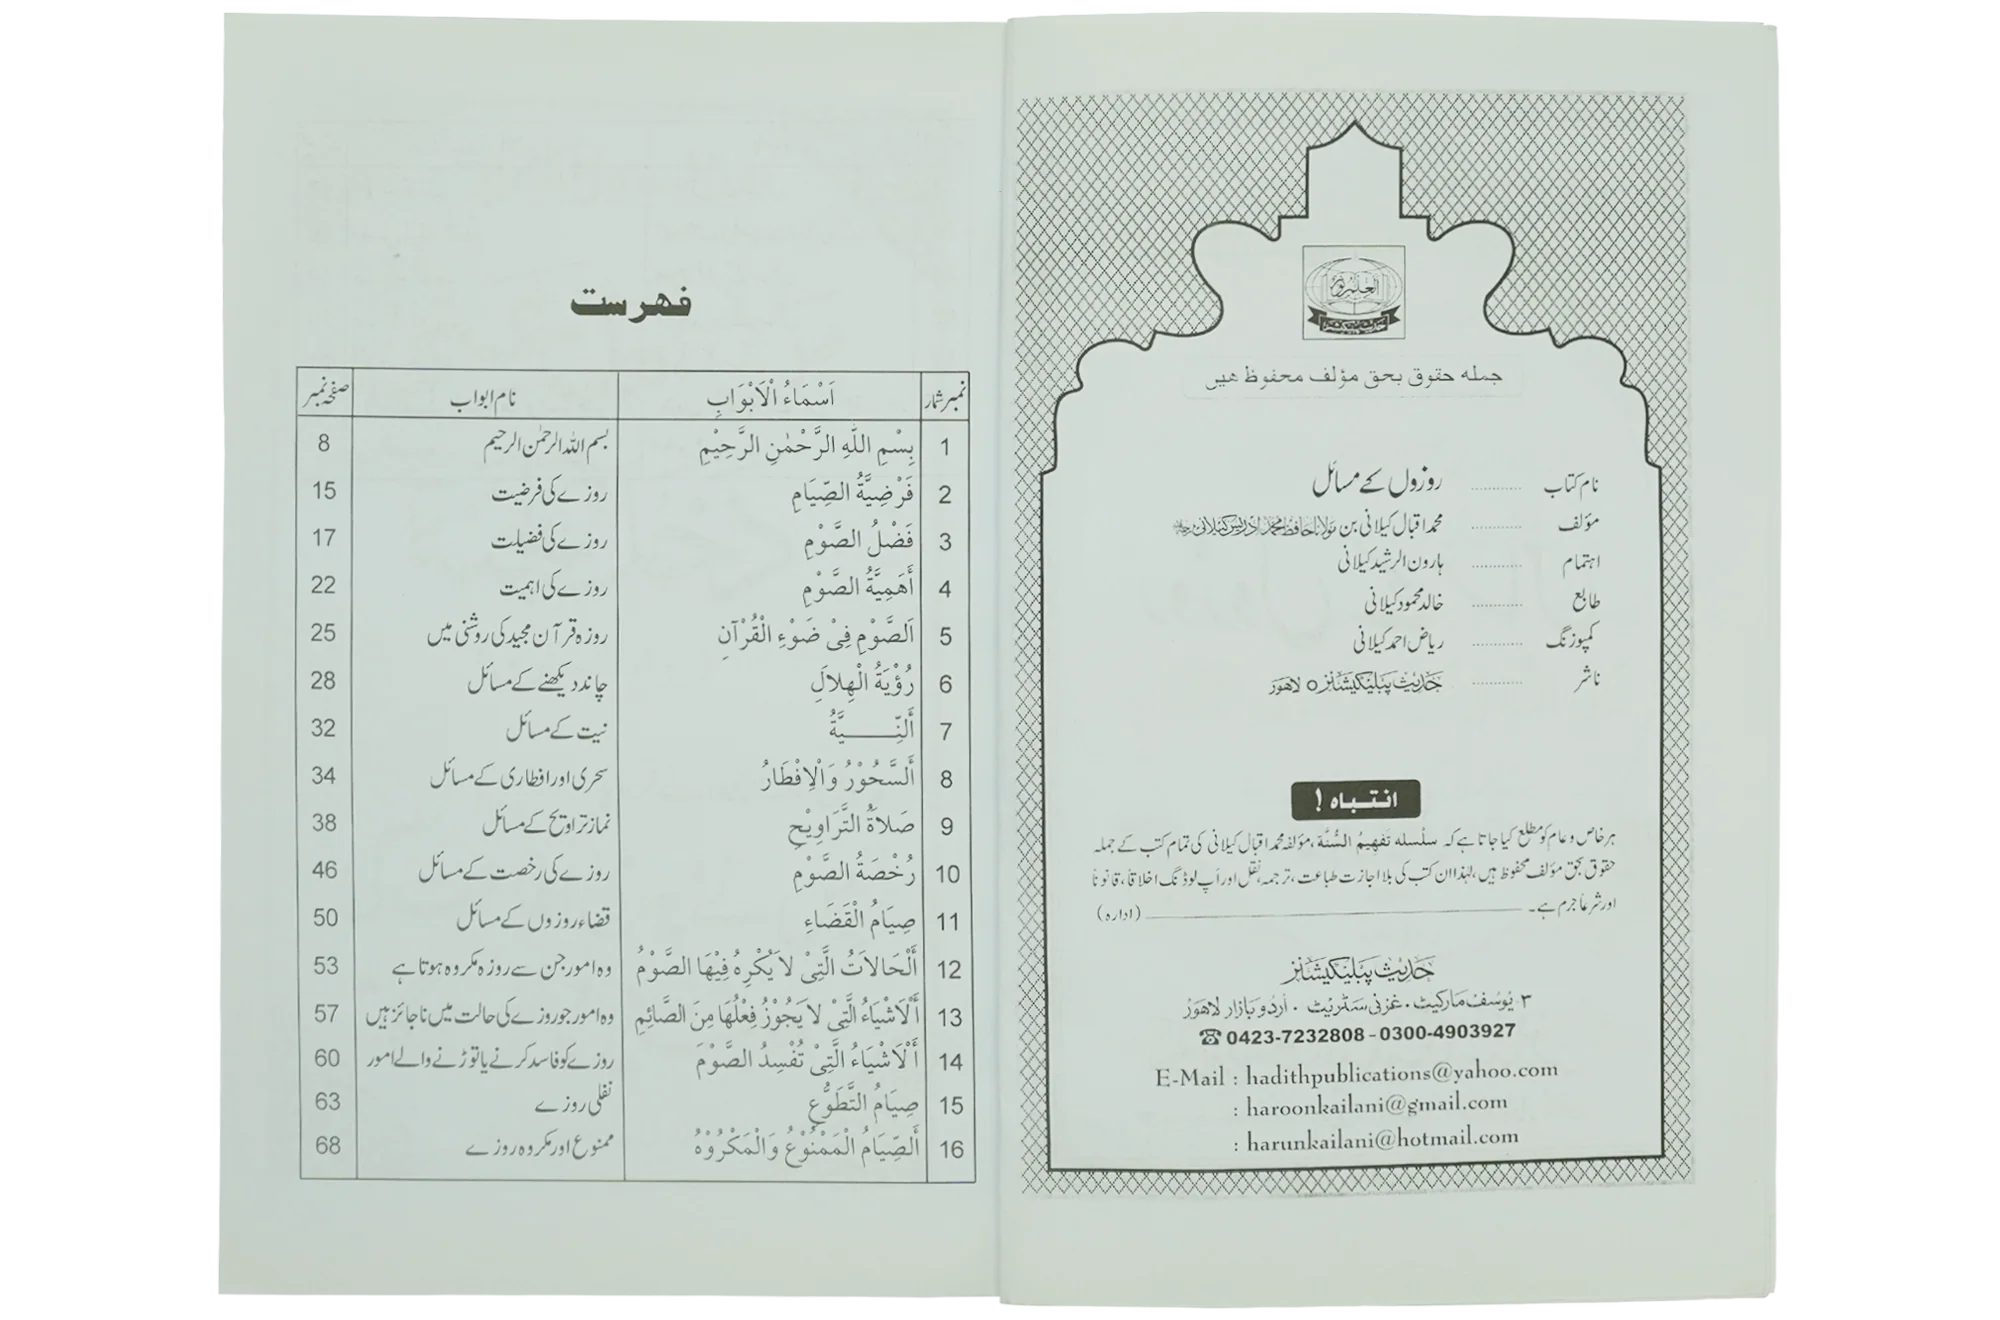 جملہ حقوق بحق مؤلف محفوظ ہیں
نام کتاب ............ روزوں کے مسائل
مؤلف ............ محمد اقبال کیلانی بن مولانا حافظ محمد ادریس کیلانی
اہتمام ............ ہارون الرشید کیلانی
طابع ............ خالد محمود کیلانی
کمپوزنگ ............ ریاض احمد کیلانی
ناشر ............ حدیث پبلیکیشنز ○ لاہور
انتباہ !
ہر خاص و عام کو مطلع کیا جاتا ہے کہ سلسلہ تَفْهِیمُ السُّنَّة، مؤلفہ محمد اقبال کیلانی کی تمام کتب کے جملہ
حقوق بحق مؤلف محفوظ ہیں، لہٰذا ان کتب کی بلا اجازت طباعت، ترجمہ، نقل اور اَپ لوڈنگ اخلاقاً، قانوناً
اور شرعاً جرم ہے۔ (ادارہ)
حدیث پبلیکیشنز
۳ یوسف مارکیٹ ۰ غزنی سٹریٹ ۰ اُردو بازار لاہور
☎ 0423-7232808 - 0300-4903927
E-Mail : hadithpublications@yahoo.com
: haroonkailani@gmail.com
: harunkailani@hotmail.com
فہرست
نمبر شمار اَسْمَاءُ الْاَبْوَابِ نام ابواب صفحہ نمبر
1 بِسْمِ اللّٰهِ الرَّحْمٰنِ الرَّحِیْمِ بسم اللہ الرحمٰن الرحیم 8
2 فَرْضِیَّةُ الصِّیَامِ روزے کی فرضیت 15
3 فَضْلُ الصَّوْمِ روزے کی فضیلت 17
4 أَهَمِیَّةُ الصَّوْمِ روزے کی اہمیت 22
5 اَلصَّوْمِ فِیْ ضَوْءِ الْقُرْآنِ روزہ قرآن مجید کی روشنی میں 25
6 رُؤْیَةُ الْهِلَالِ چاند دیکھنے کے مسائل 28
7 أَلنِّــــــیَّةُ نیت کے مسائل 32
8 أَلسَّحُوْرُ وَالْاِفْطَارُ سحری اور افطاری کے مسائل 34
9 صَلَاةُ التَّرَاوِیْحِ نماز تراویح کے مسائل 38
10 رُخْصَةُ الصَّوْمِ روزے کی رخصت کے مسائل 46
11 صِیَامُ الْقَضَاءِ قضاء روزوں کے مسائل 50
12 أَلْحَالَاتُ الَّتِیْ لَا یُكْرِهُ فِیْهَا الصَّوْمُ وہ امور جن سے روزہ مکروہ ہوتا ہے 53
13 أَلْاَشْیَاءُ الَّتِیْ لَا یَجُوْزُ فِعْلُهَا مِنَ الصَّائِمِ وہ امور جو روزے کی حالت میں ناجائز ہیں 57
14 أَلْاَشْیَاءُ الَّتِیْ تُفْسِدُ الصَّوْمَ روزے کو فاسد کرنے یا توڑنے والے امور 60
15 صِیَامُ التَّطَوُّعِ نفلی روزے 63
16 أَلصِّیَامُ الْمَمْنُوْعُ وَالْمَكْرُوْهُ ممنوع اور مکروہ روزے 68